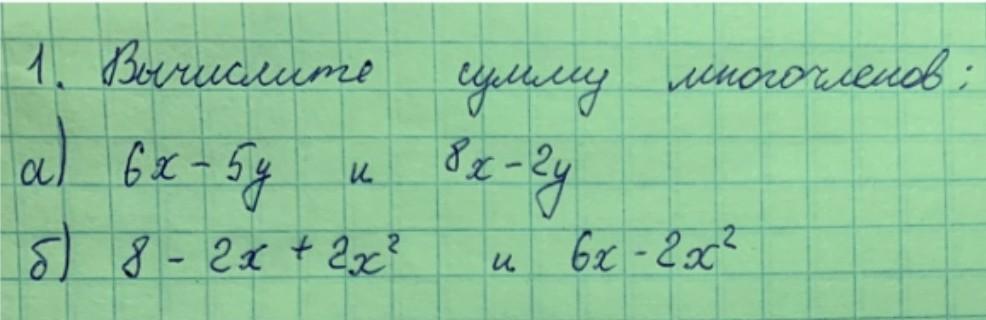 1. Вычислите сумму многочленов:
а) 6x - 5y и 8x - 2y
б) 8 - 2x + 2x² и 6x - 2x²